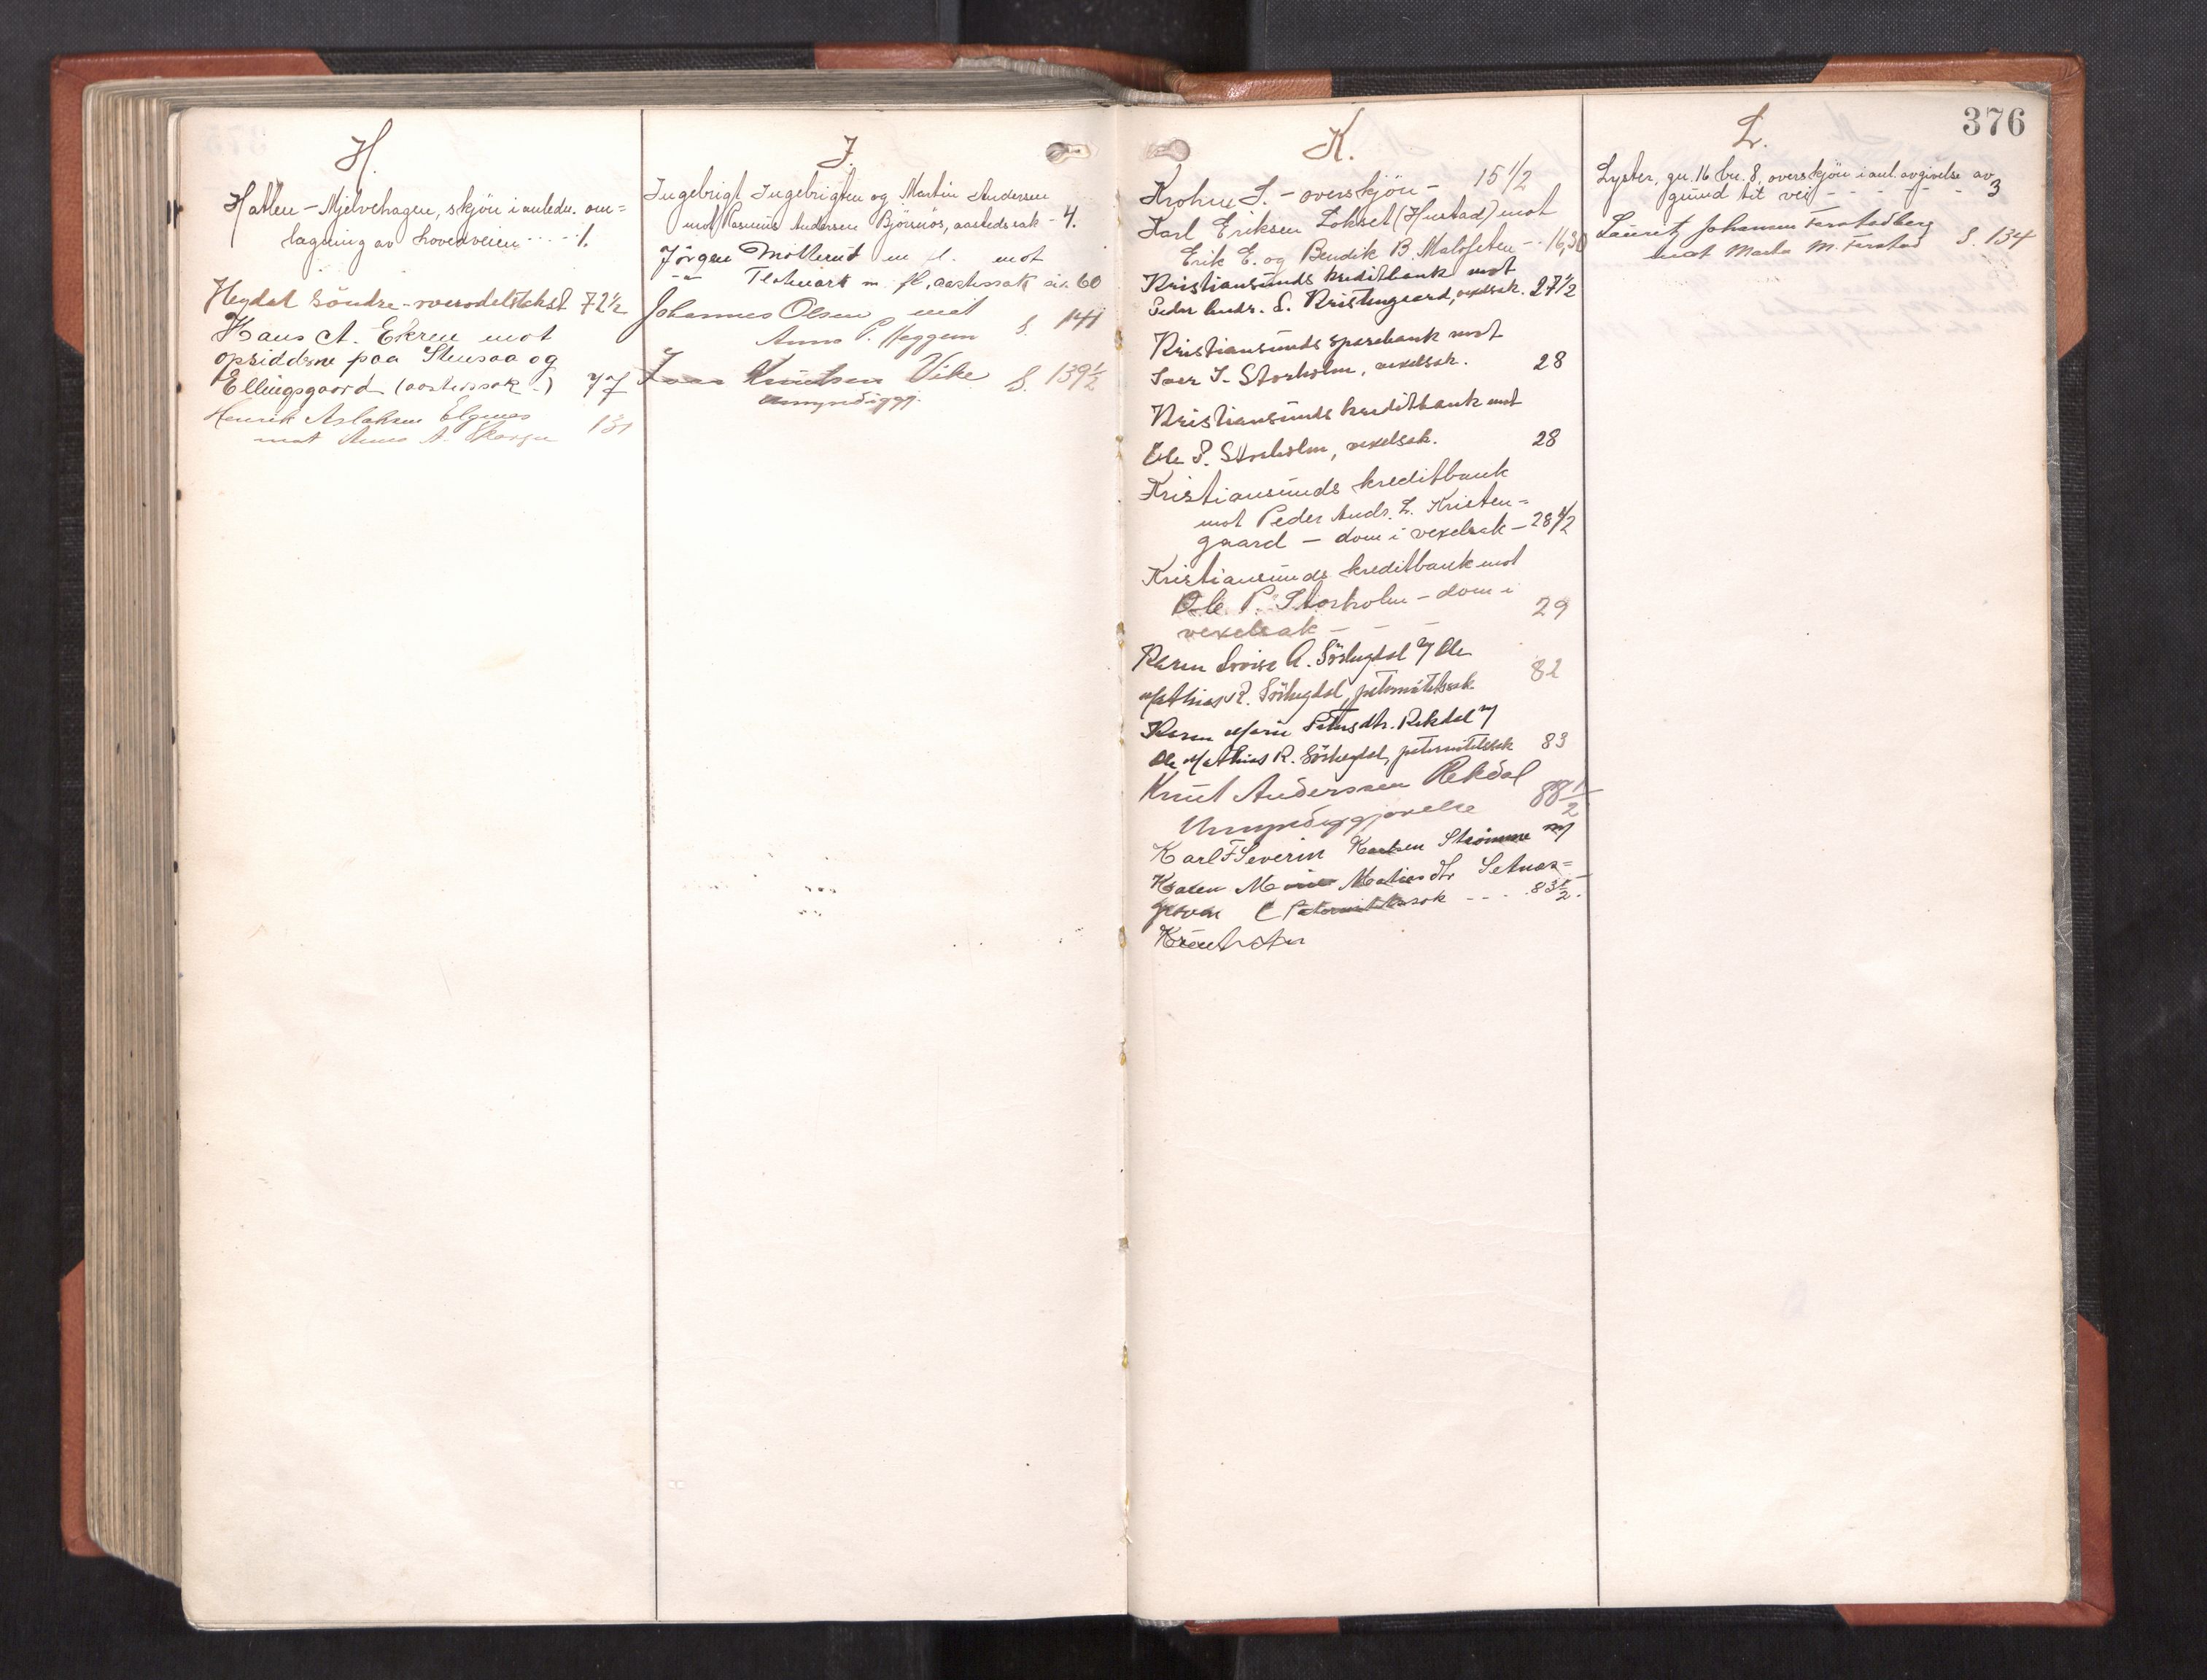 H.
Hatlen - Mjelvehagen, skjön i anledn. om=
lægning av hovedveien ---- 1.
Heydal söndre - overodelstakst 72½
Hans A. Ekren mot
opsidderne paa Stensaa og
Ellingsgaard (aastedssak -) 77
Henrik Aslaksen Elgenes
mot Anne A. 131
J.
Ingebrigt Ingebrigtsen og Martin Andersen
mot Rasmus Andersen Björnös, aastedssak - 4.
Jörgen Möllerud m fl. mot
m. fl, aastedssak 60
Johannes Olsen mot
Anne P. Heggem S. 141
Knutsen Vike S. 139½
umyndiggj.
K.
Krohn S. - overskjön - 15 1/2
Karl Eriksen Lokset (Hustad) mot
Erik E. og Bendik B. Malefeten - 16,30
Kristiansunds kreditbank mot
Peder Andr. L. Kristengaard, vexelsak. 27½
Kristiansunds sparebank mot
Iver I. Storholm, vexelsak. 28
Kristiansunds kreditbank mot
Ole P. Storholm, vexelsak. 28
Kristiansunds kreditbank
mot Peder Andr. L. Kristen=
gaard - dom i vexelsak - 28½
Kristiansunds kreditbank mot
Ole P. Storholm - dom i
vexelsak - - - 29
Karen Lovise A. Sörheydal m/ Ole
Mathias R. Sörheydal, paternitetssak 82
Karen Marie Petersdtr. Rekdal m/
Ole Mathias R. Sörheydal, paternitetssak 83
Knut Anderssen Rekdal
Umyndiggjörelse 88½
Karl F Severin Karlsen Strömme m/
Karen Marie Matiasdtr Setnes=
Paternitetssak --- 83½.
Knut An
L.
376
Lyster, gn. 16 bn. 8, overskjön i anl. avgivelse av
grund til vei - - - - 3
Lauritz Johansen Farstadberg
mot Marta M. Farstad S. 134